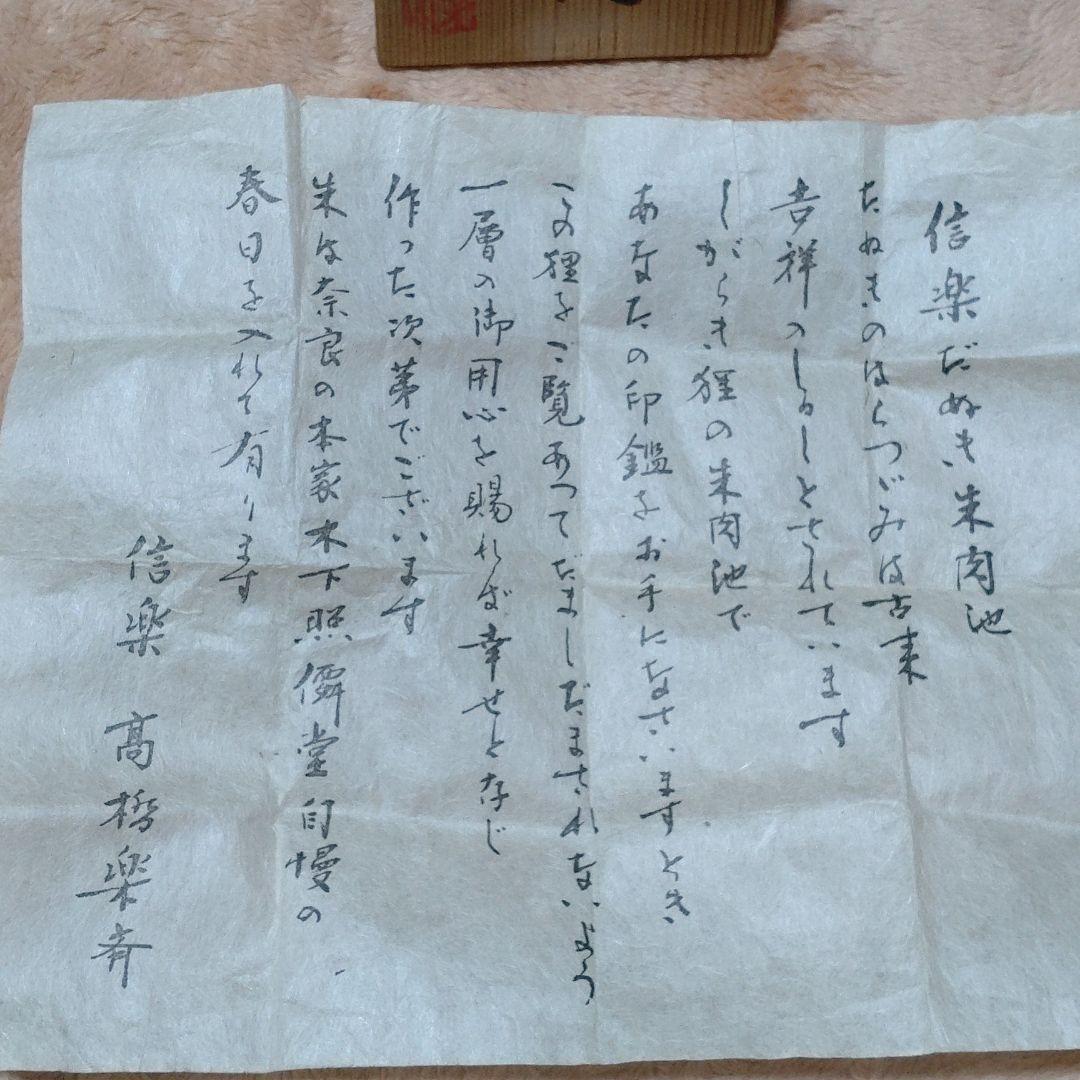 信楽だぬき朱肉池
たぬきのはらつゞみは古来
吉祥のしるしとされています
しがらき狸の朱肉池で
あなたの印鑑をお手になさいますとき
この狸をご覧あってだましだまされないよう
一層の御用心を賜れば幸せと存じ
作った次第でございます
朱は奈良の本家木下照僊堂自慢の
春日を入れて有ります
信楽 高橋楽斉